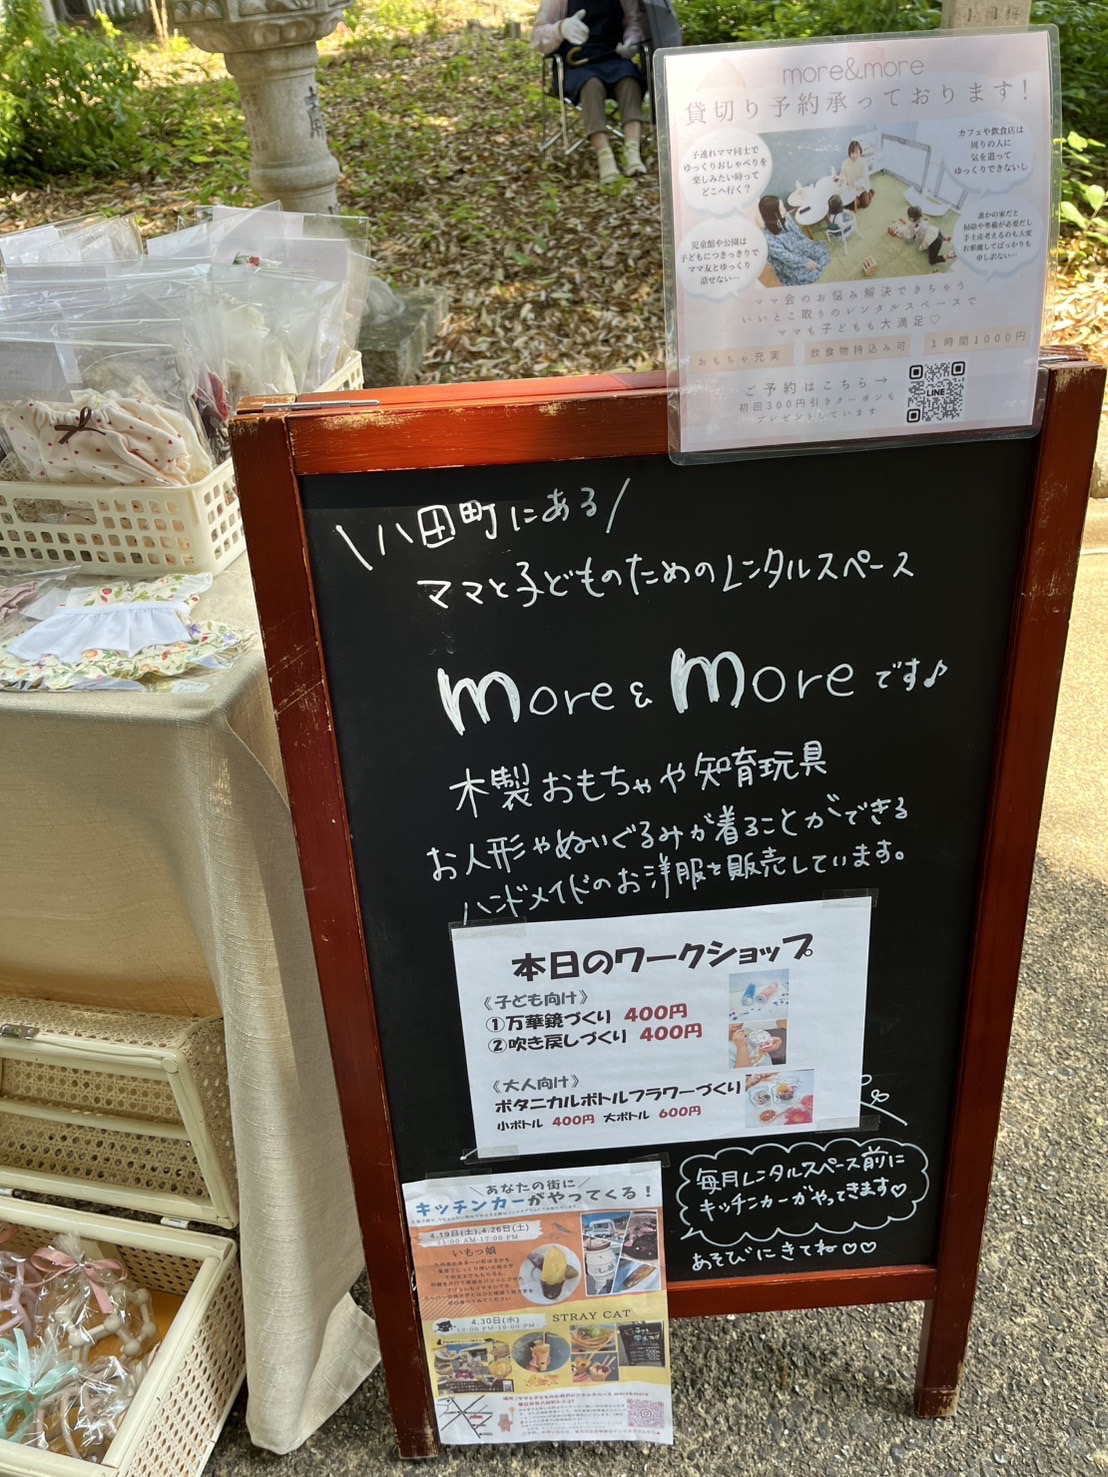 more&more
貸切り予約承っております!
子連れママ同士で
ゆっくりおしゃべりを
楽しみたい時って
どこへ行く?
カフェや飲食店は
周りの人に
気を遣って
ゆっくりできないし
児童館や公園は
子どもにつきっきりで
ママ友とゆっくり
話せない…
誰かの家だと
掃除や準備が必要だし
手土産考えるのも大変
お邪魔してばっかりも
申し訳ない…
ママ会のお悩み解決できちゃう
いいとこ取りのレンタルスペースで
ママも子どもも大満足♡
おもちゃ充実
飲食物持込み可
1時間1000円
ご予約はこちら→
初回300円引きクーポンも
プレゼントしています
LINE
\八田町にある/
ママと子どものためのレンタルスペース
more & moreです♪
木製おもちゃや知育玩具
お人形やぬいぐるみが着ることができる
ハンドメイドのお洋服を販売しています。
本日のワークショップ
《子ども向け》
①万華鏡づくり 400円
②吹き戻しづくり 400円
《大人向け》
ボタニカルボトルフラワーづくり
小ボトル 400円 大ボトル 600円
毎月レンタルスペース前に
キッチンカーがやってきます♡
あそびにきてね♡♡
\あなたの街に/
キッチンカーがやってくる!
4.19日(土),4.26日(土)
11:00 AM-17:00 PM
いもっ娘
4.30日(水)
STRAY CAT